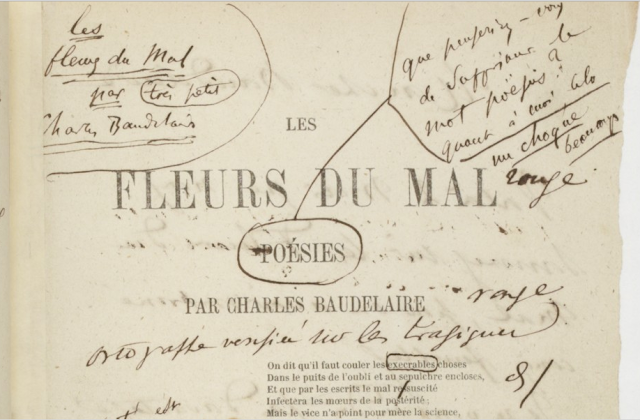 les
fleurs du Mal
par très petit
Charles Baudelaire
que penseriez-vous
de supprimer le
mot poësies?
quant à moi cela
me choque
beaucoup
LES
FLEURS DU MAL
rouge
POÉSIES
PAR CHARLES BAUDELAIRE
rouge
ortographe verifiée sur les tragiques
On dit qu'il faut couler les execrables choses
Dans le puits de l'oubli et au sepulchre encloses,
Et que par les escrits le mal resuscité
Infectera les mœurs de la postérité;
Mais le vice n'a point pour mère la science,